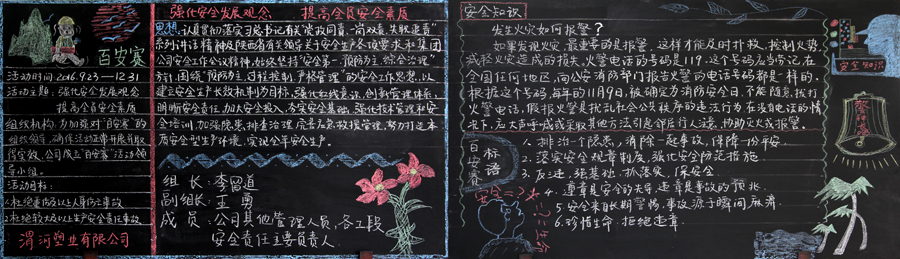 百安赛
活动时间:2016.9.23—12.31
活动主题:强化安全发展观念
提高全员安全素质
组织机构:为加强对"百安赛"的
组织领导,确保活动正常开展并取
得实效,公司成立"百安赛"活动领
导小组。
活动目标:
1.杜绝重伤及以上人身伤亡事故
2.杜绝较大及以上生产安全责任事故
渭河塑业有限公司
强化安全发展观念 提高全员安全素质
思想:认真贯彻落实习总书记有关"党政同责、一岗双责、失职追责"
系列讲话精神及陕西省有关领导关于安全生产各项要求和集团
公司安全工作会议精神,始终坚持"安全第一、预防为主、综合治理"
方针,围绕"预防为主、过程控制、严格管理"的安全工作思想,以
建立安全生产长效机制为目标,强化红线意识、创新管理体系、
明晰安全责任、加大安全投入、夯实安全基础、强化技术管理和安
全培训、加强隐患排查治理、完善应急救援管理,努力打造本
质安全型生产环境,实现全年安全生产。
组 长:李留道
副组长:王勇
成 员:公司其他管理人员、各工段
安全责任主要负责人
安全知识:
发生火灾如何报警?
如果发现火灾,最重要的是报警,这样才能及时扑救,控制火势
减轻火灾造成的损失,火警电话的号码是119。这个号码应当牢记,在
全国任何地区,向公安消防部门报告火警的电话号码都是一样的。
根据这个号码,每年的11月9日,被确定为消防安全日。不能随意拨打
火警电话,假报火警是扰乱社会公共秩序的违法行为。在没有电话的情
况下,应大声呼喊或采取其他方法引起邻居、行人注意,协助灭火或报警。
百安赛
标语
1.排治一个隐患,消除一起事故,保障一份平安。
2.落实安全规章制度,强化安全防范措施
3.反三违、强基础、抓落实、保安全.
4.遵章是安全的先导,违章是事故的预兆
5.安全来自长期警惕,事故源于瞬间麻痹
6.珍惜生命,拒绝违章。
安全=?
生命
安全知识
警钟长鸣